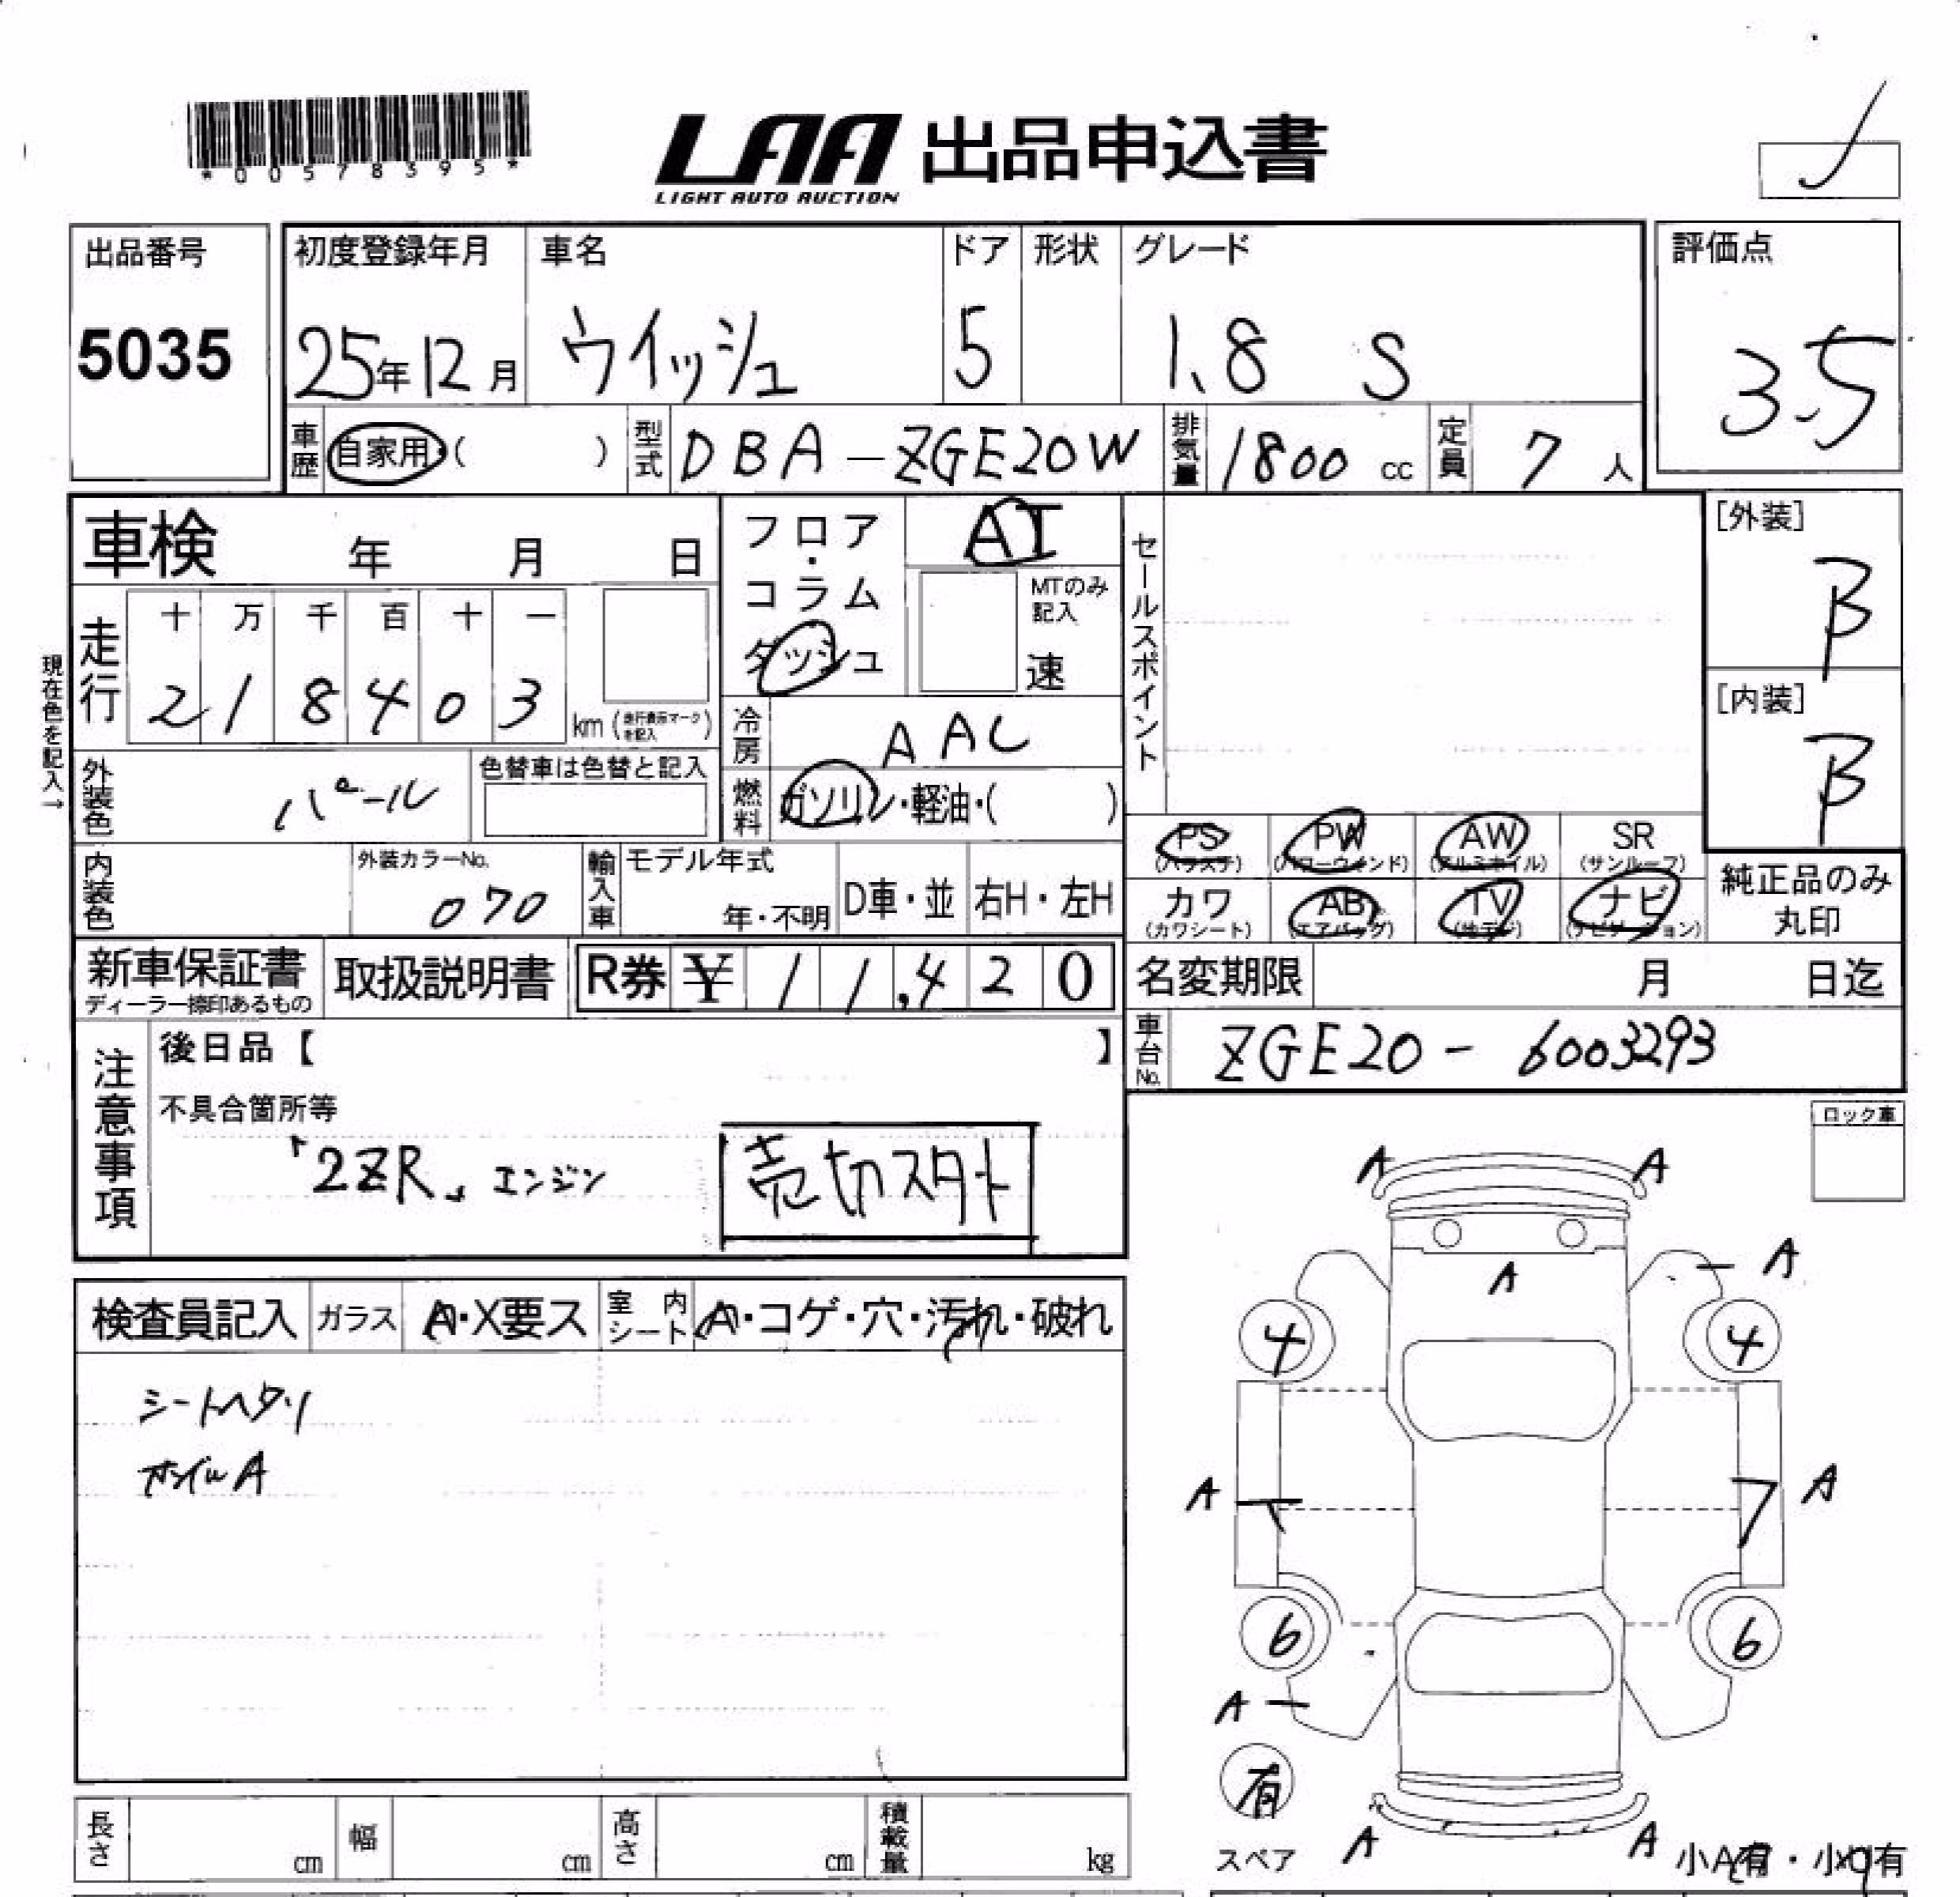 *00578395*
LAA 出品申込書
LIGHT AUTO AUCTION
出品番号
5035
初度登録年月 車名 ドア 形状 グレード
25年12月 ウイッシュ 5 1.8 S
評価点
3.5
車歴 自家用・( ) 型式 DBA-ZGE20W 排気量 1800 cc 定員 7 人
車検 年 月 日
フロア・コラム ダッシュ
AT
MTのみ記入
速
セールスポイント
[外装]
B
[内装]
B
現在色を記入→
走行
十 万 千 百 十 一
2 1 8 4 0 3 km (走行表示マークを記入)
冷房 AAC
外装色 パール
色替車は色替と記入
燃料 ガソリン・軽油・( )
PS PW AW SR
(パワステ) (パワーウィンド) (アルミホイル) (サンルーフ)
カワ AB TV ナビ
(カワシート) (エアバッグ) (地デジ) (ナビゲーション)
純正品のみ
丸印
内装色
外装カラーNo.
070
輸入車 モデル年式
年・不明 D車・並 右H・左H
新車保証書
ディーラー捺印あるもの
取扱説明書
R券 ¥ 1 1,4 2 0
名変期限 月 日迄
車台No. ZGE20-6003293
注意事項
後日品【 】
不具合箇所等
「2ZR」エンジン
売切スタート
ロック車
検査員記入 ガラス A・X要ス 室内シート A・コゲ・穴・汚れ・破れ
シートヘタリ
ホイルA
A A
A
A
4 4
A A
6 6
A
有
スペア
A A
小A有・小U有
長さ cm 幅 cm 高さ cm 積載量 kg